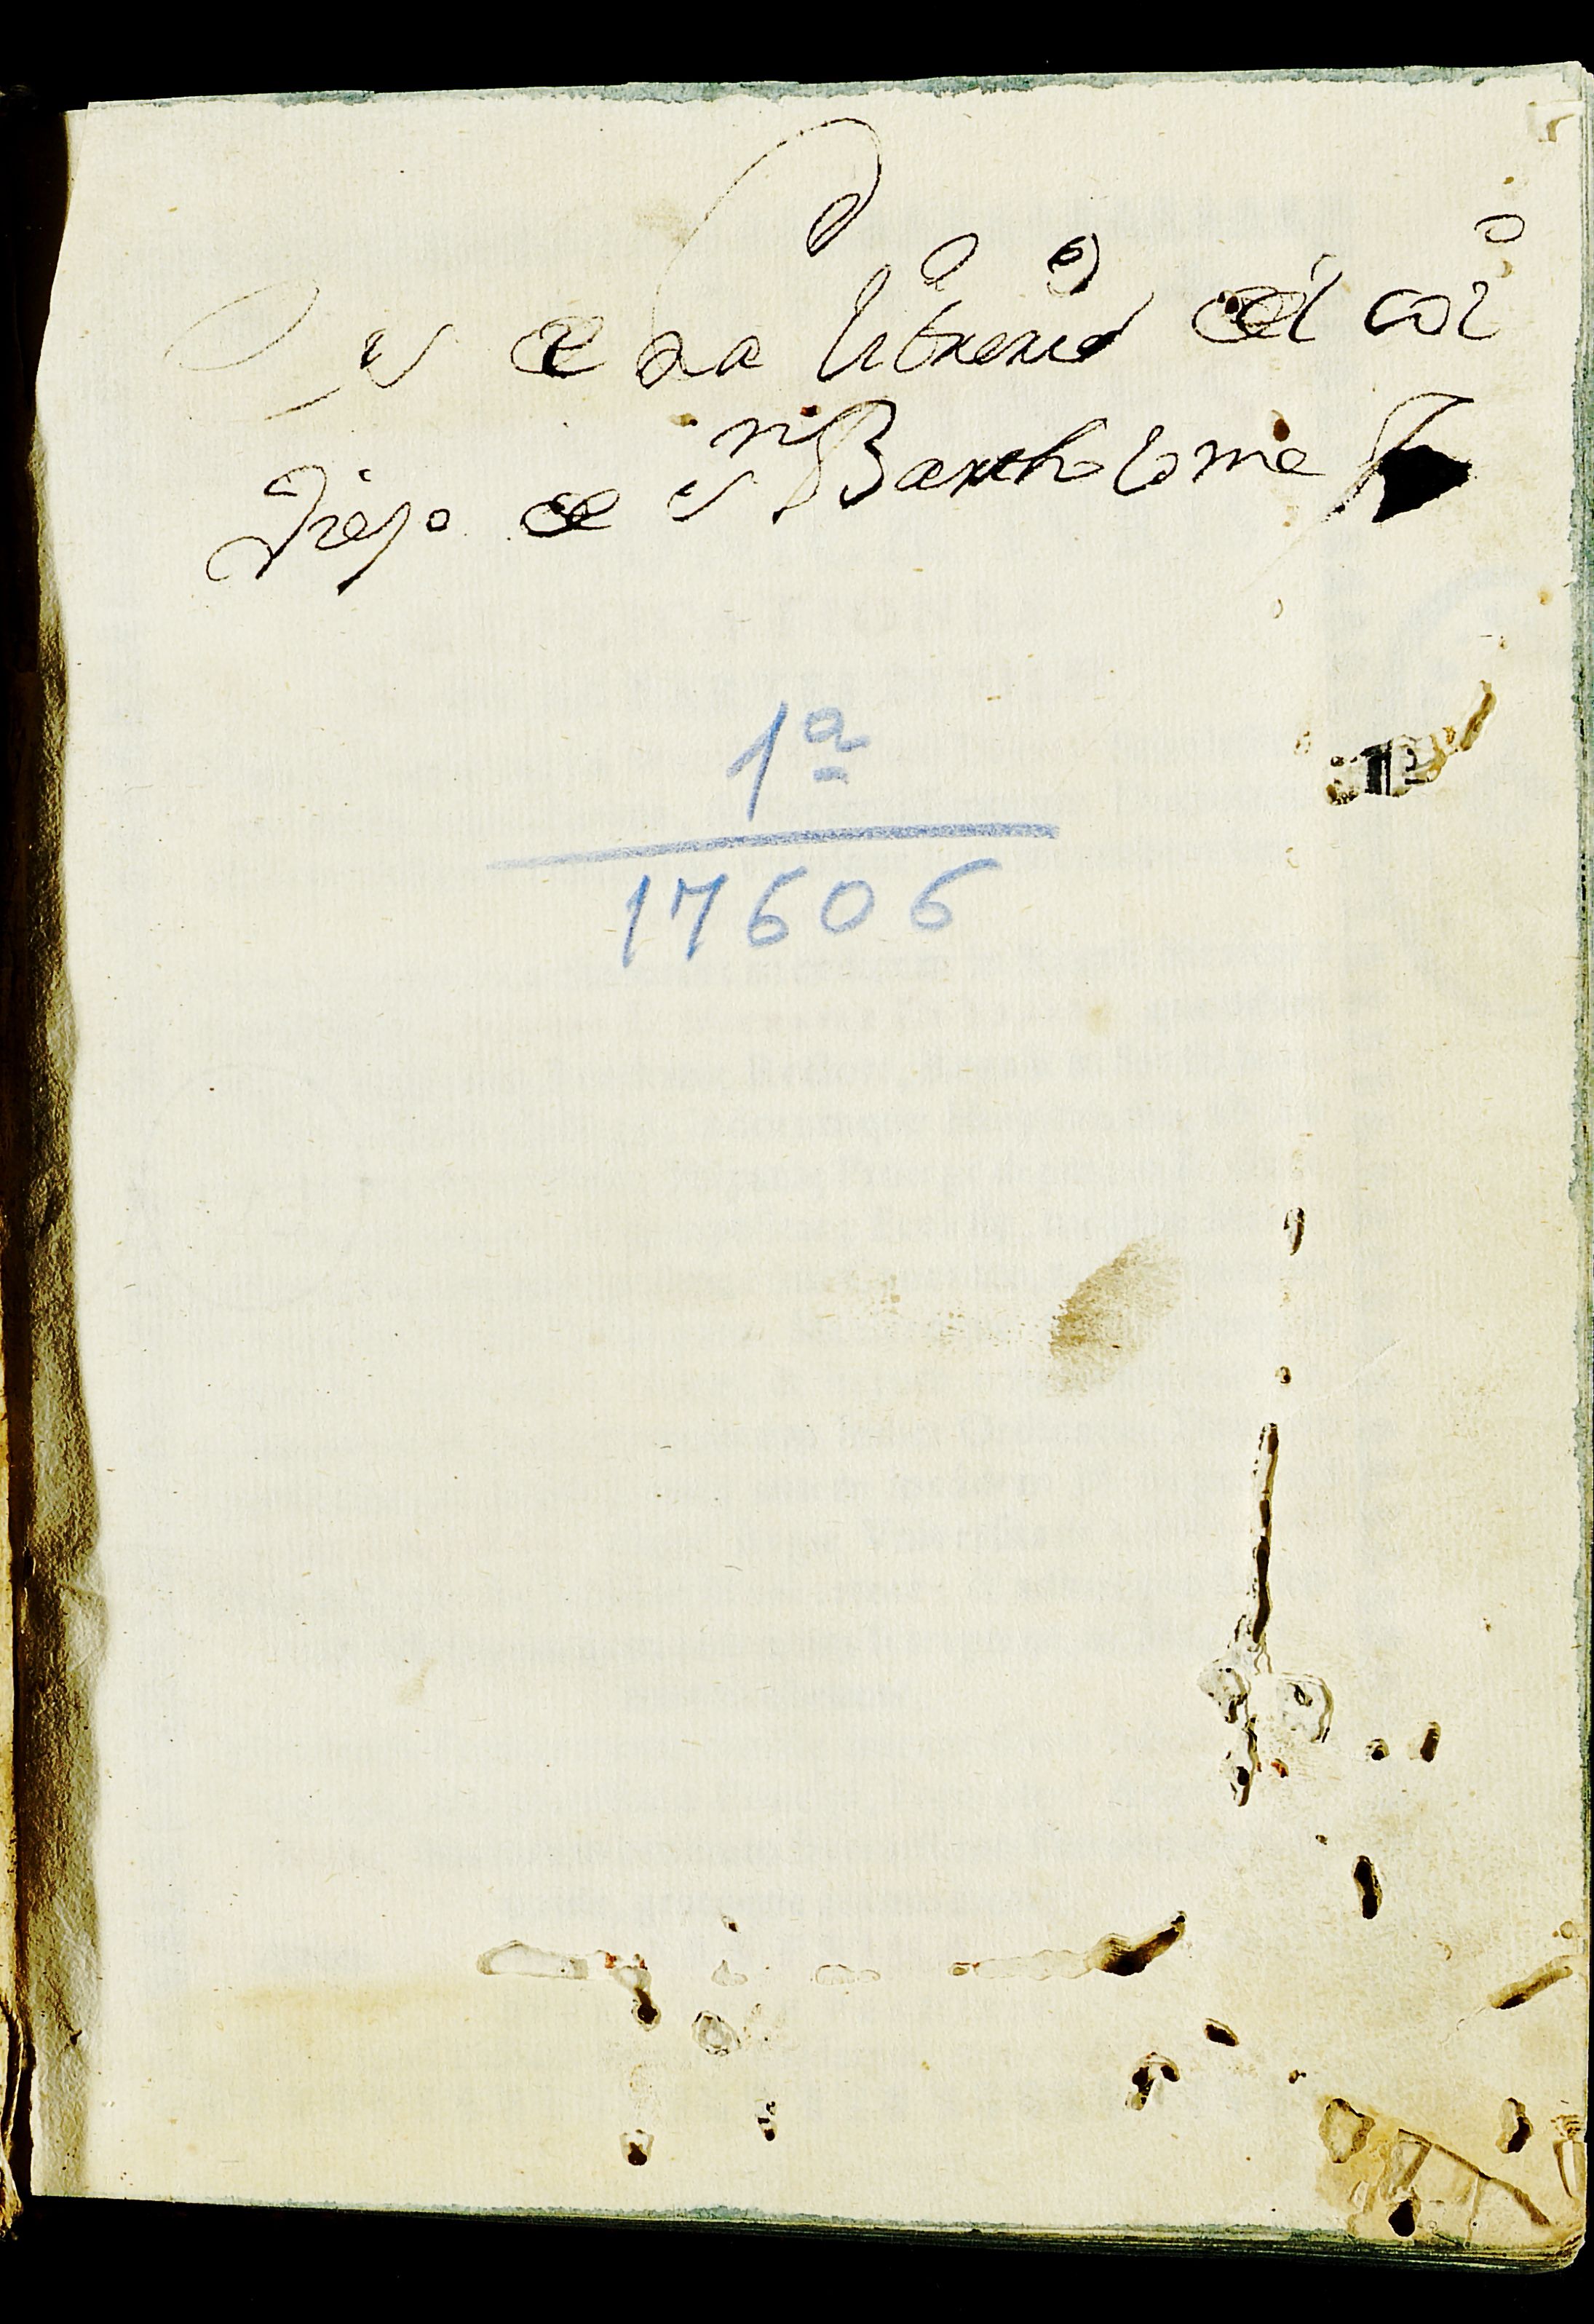 es de la libreria del col
viejo de Sn Bartholome
1a
17606